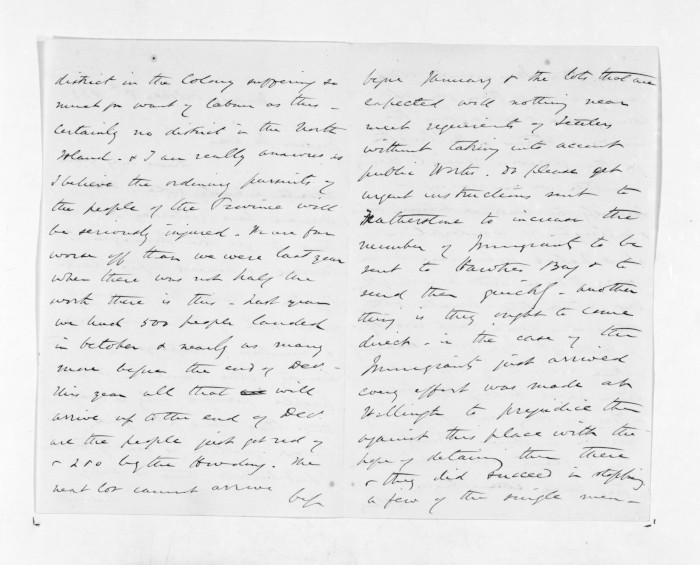 district in the Colony suffering so
much for want of labour as this -
Certainly no district in the North
Island - & I am really anxious as
I believe the ordinary pursuits of
the people of the Province will
be seriously injured - We are far
worse off than we were last year
when there was not half the
work there is this - Last year
we had 500 people landed
in October & nearly as many
more before the end of Decr -
This year all that will
arrive up to the end of Decr
are the people just got rid of
& 250 by the Howding. The
next lot cannot arrive
befre
before January & the lots that are
expected will nothing near
meet requirements of Settlers
without taking into account
public Works. Do please get
urgent instructions sent to
Featherstone to increase the
number of Immigrants to be
sent to Hawkes Bay & to
send them quickly - another
thing is they ought to come
direct - in the case of the
Immigrants just arrived
every effort was made at
Wellington to prejudice them
against this place with the
hope of detaining them there
& they did succeed in stopping
a few of the single men -